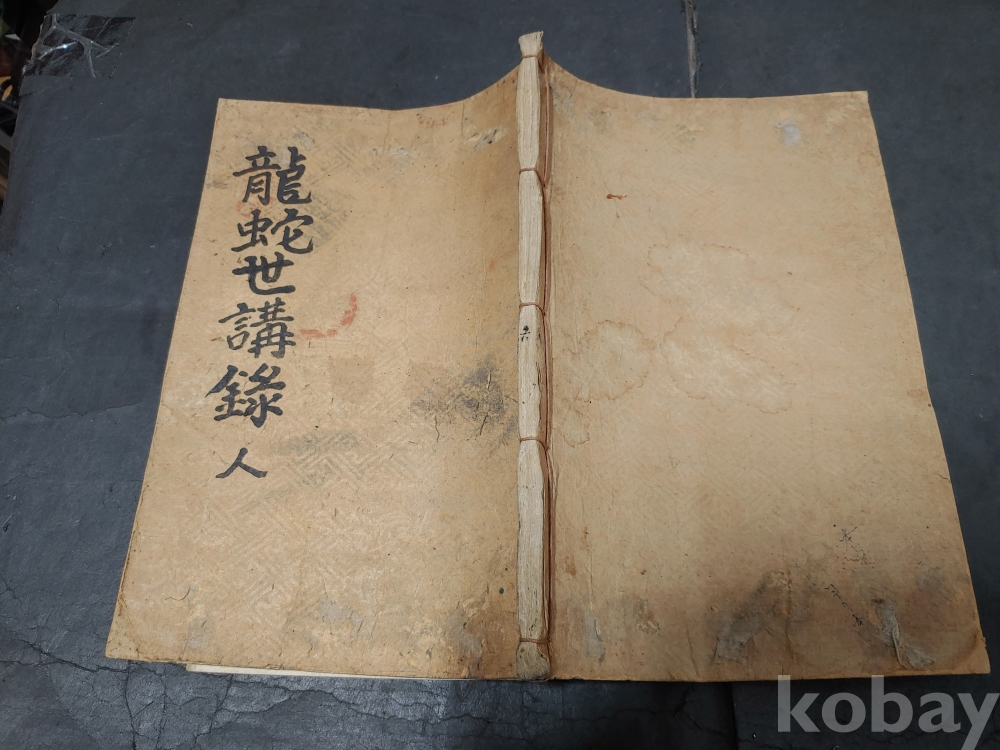 龍蛇世講錄 人
kobay